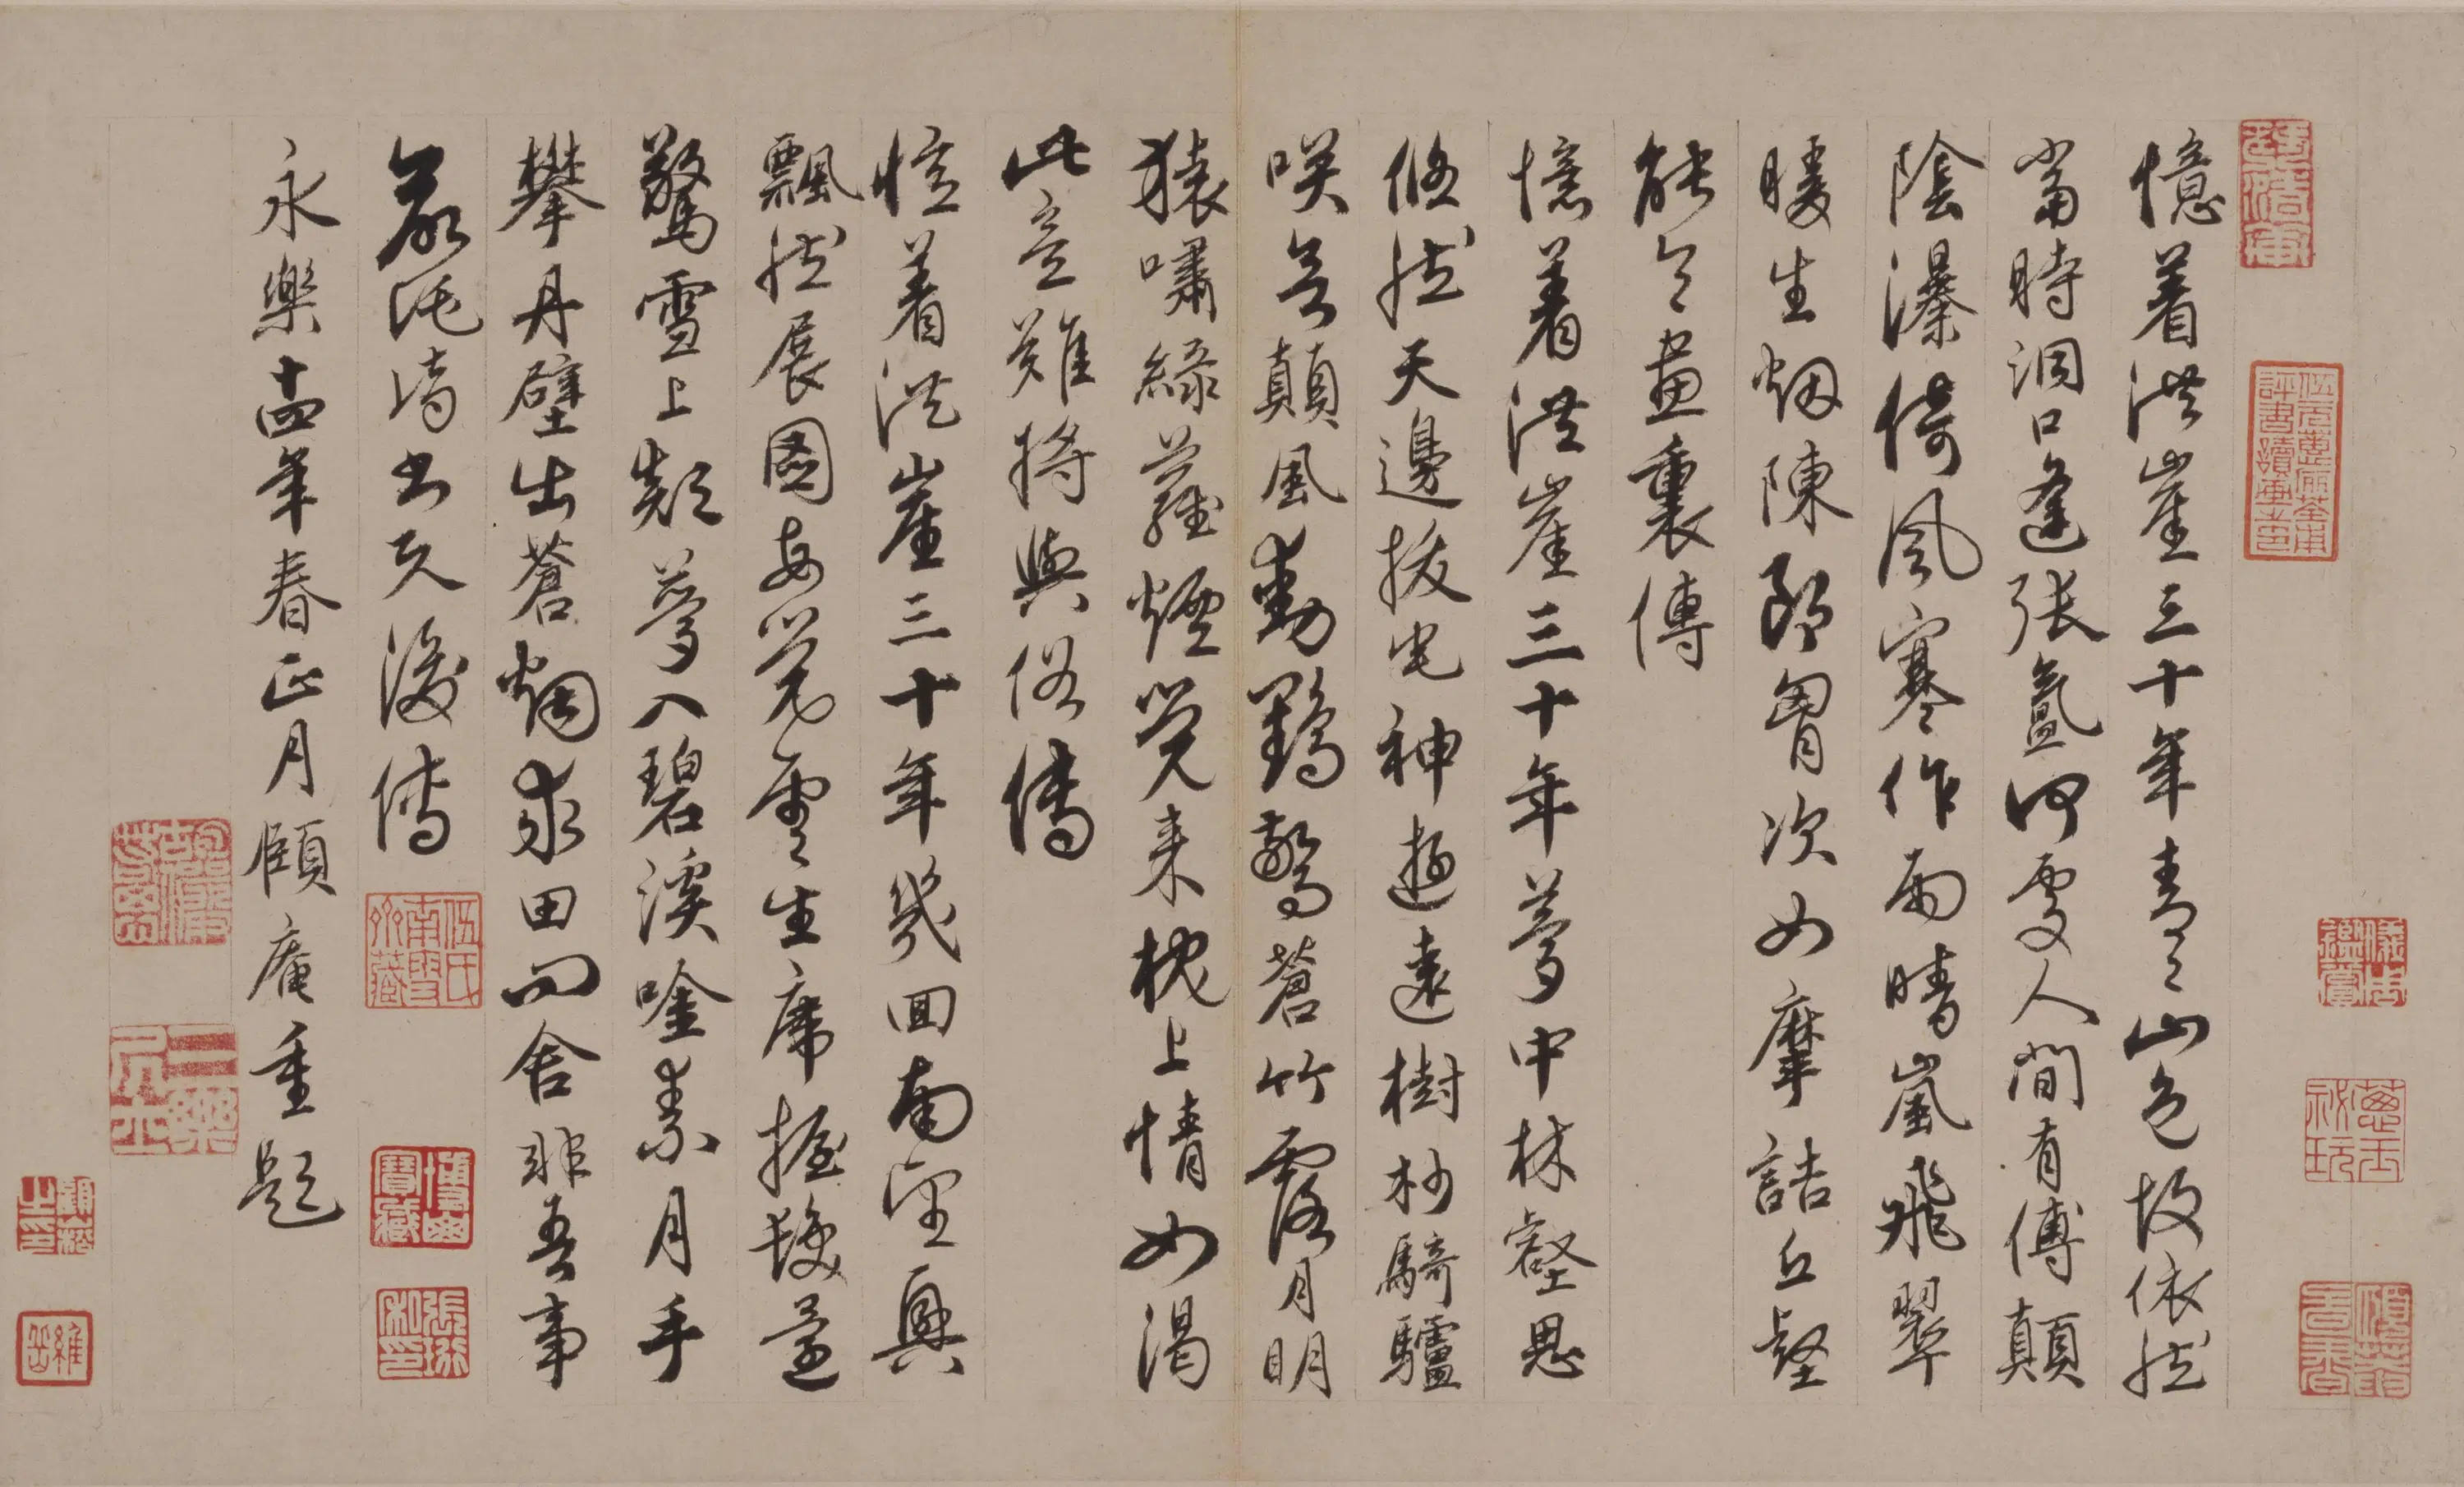 憶着洪崖三十年青々山色故依然
當時洞口逢張氳何處人間有傅顛
陰瀑倚風寒作雨晴嵐飛翠
暖生烟陳郎胷次如摩詰丘壑
能令畫裏傳
憶着洪崖三十年夢中林壑思
悠然天邊拔宅神遊遠樹杪騎驢
咲兴顛風動鸛驚蒼竹露月明
猿嘯綠蘿煙覺来枕上情如渴
此意難將與俗傳
憶着洪崖三十年幾回南望興
飄然展圖每覺雲生席握髮還
驚雪上顛夢入碧溪唫素月手
攀丹壁出蒼烟求田問舍非吾事
永樂十四年春正月頤庵重題